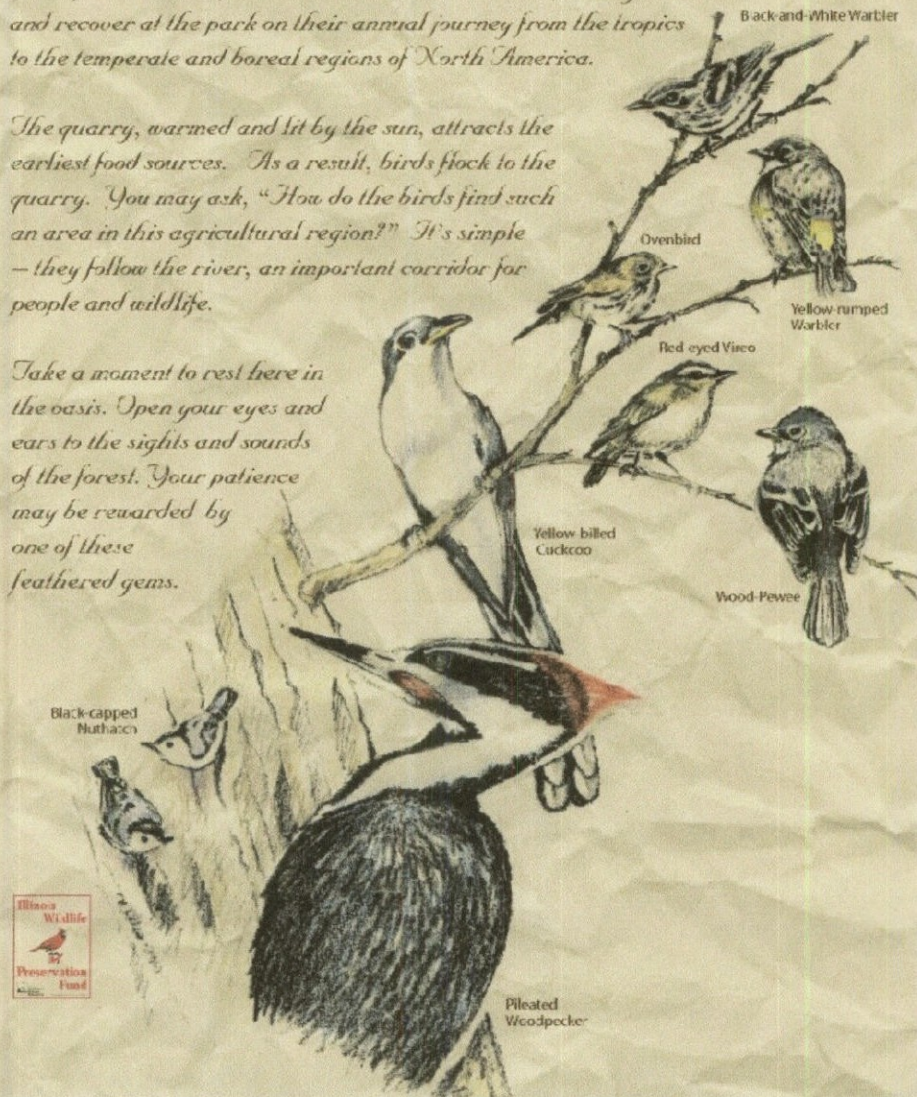 and recover at the park on their annual journey from the tropics
to the temperate and boreal regions of North America.
The quarry, warmed and lit by the sun, attracts the
earliest food sources. As a result, birds flock to the
quarry. You may ask, “How do the birds find such
an area in this agricultural region?” It's simple
– they follow the river, an important corridor for
people and wildlife.
Take a moment to rest here in
the oasis. Open your eyes and
ears to the sights and sounds
of the forest. Your patience
may be rewarded by
one of these
feathered gems.
Black-and-White Warbler
Ovenbird
Yellow-rumped
Warbler
Red-eyed Vireo
Yellow-billed
Cuckcoo
Wood-Pewee
Black-capped
Nuthatch
Pileated
Woodpecker
Illinois
Wildlife
Preservation
Fund